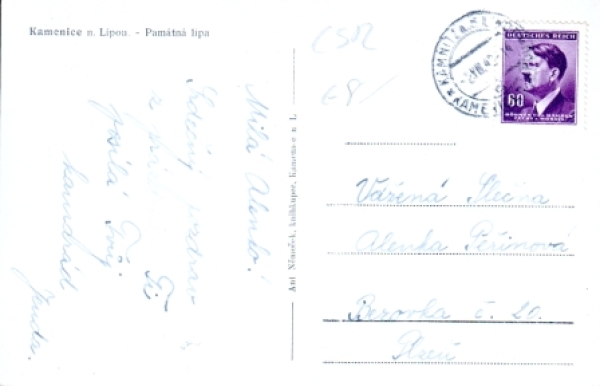 Kamenice n. Lipou. - Památná lípa
Milá Alenko!
Srdečný pozdrav
z
Ti
posílá Tvůj
kamarád
Jenda.
Ant. Němeček, knihkupec, Kamenice n. L.
ČSR
DEUTSCHES REICH
60
BÖHMEN UND MÄHREN
ČECHY A MORAVA
KAMENI
Vážená Slečna
Alenka Peřinová
Bezovka č. 20.
Plzeň